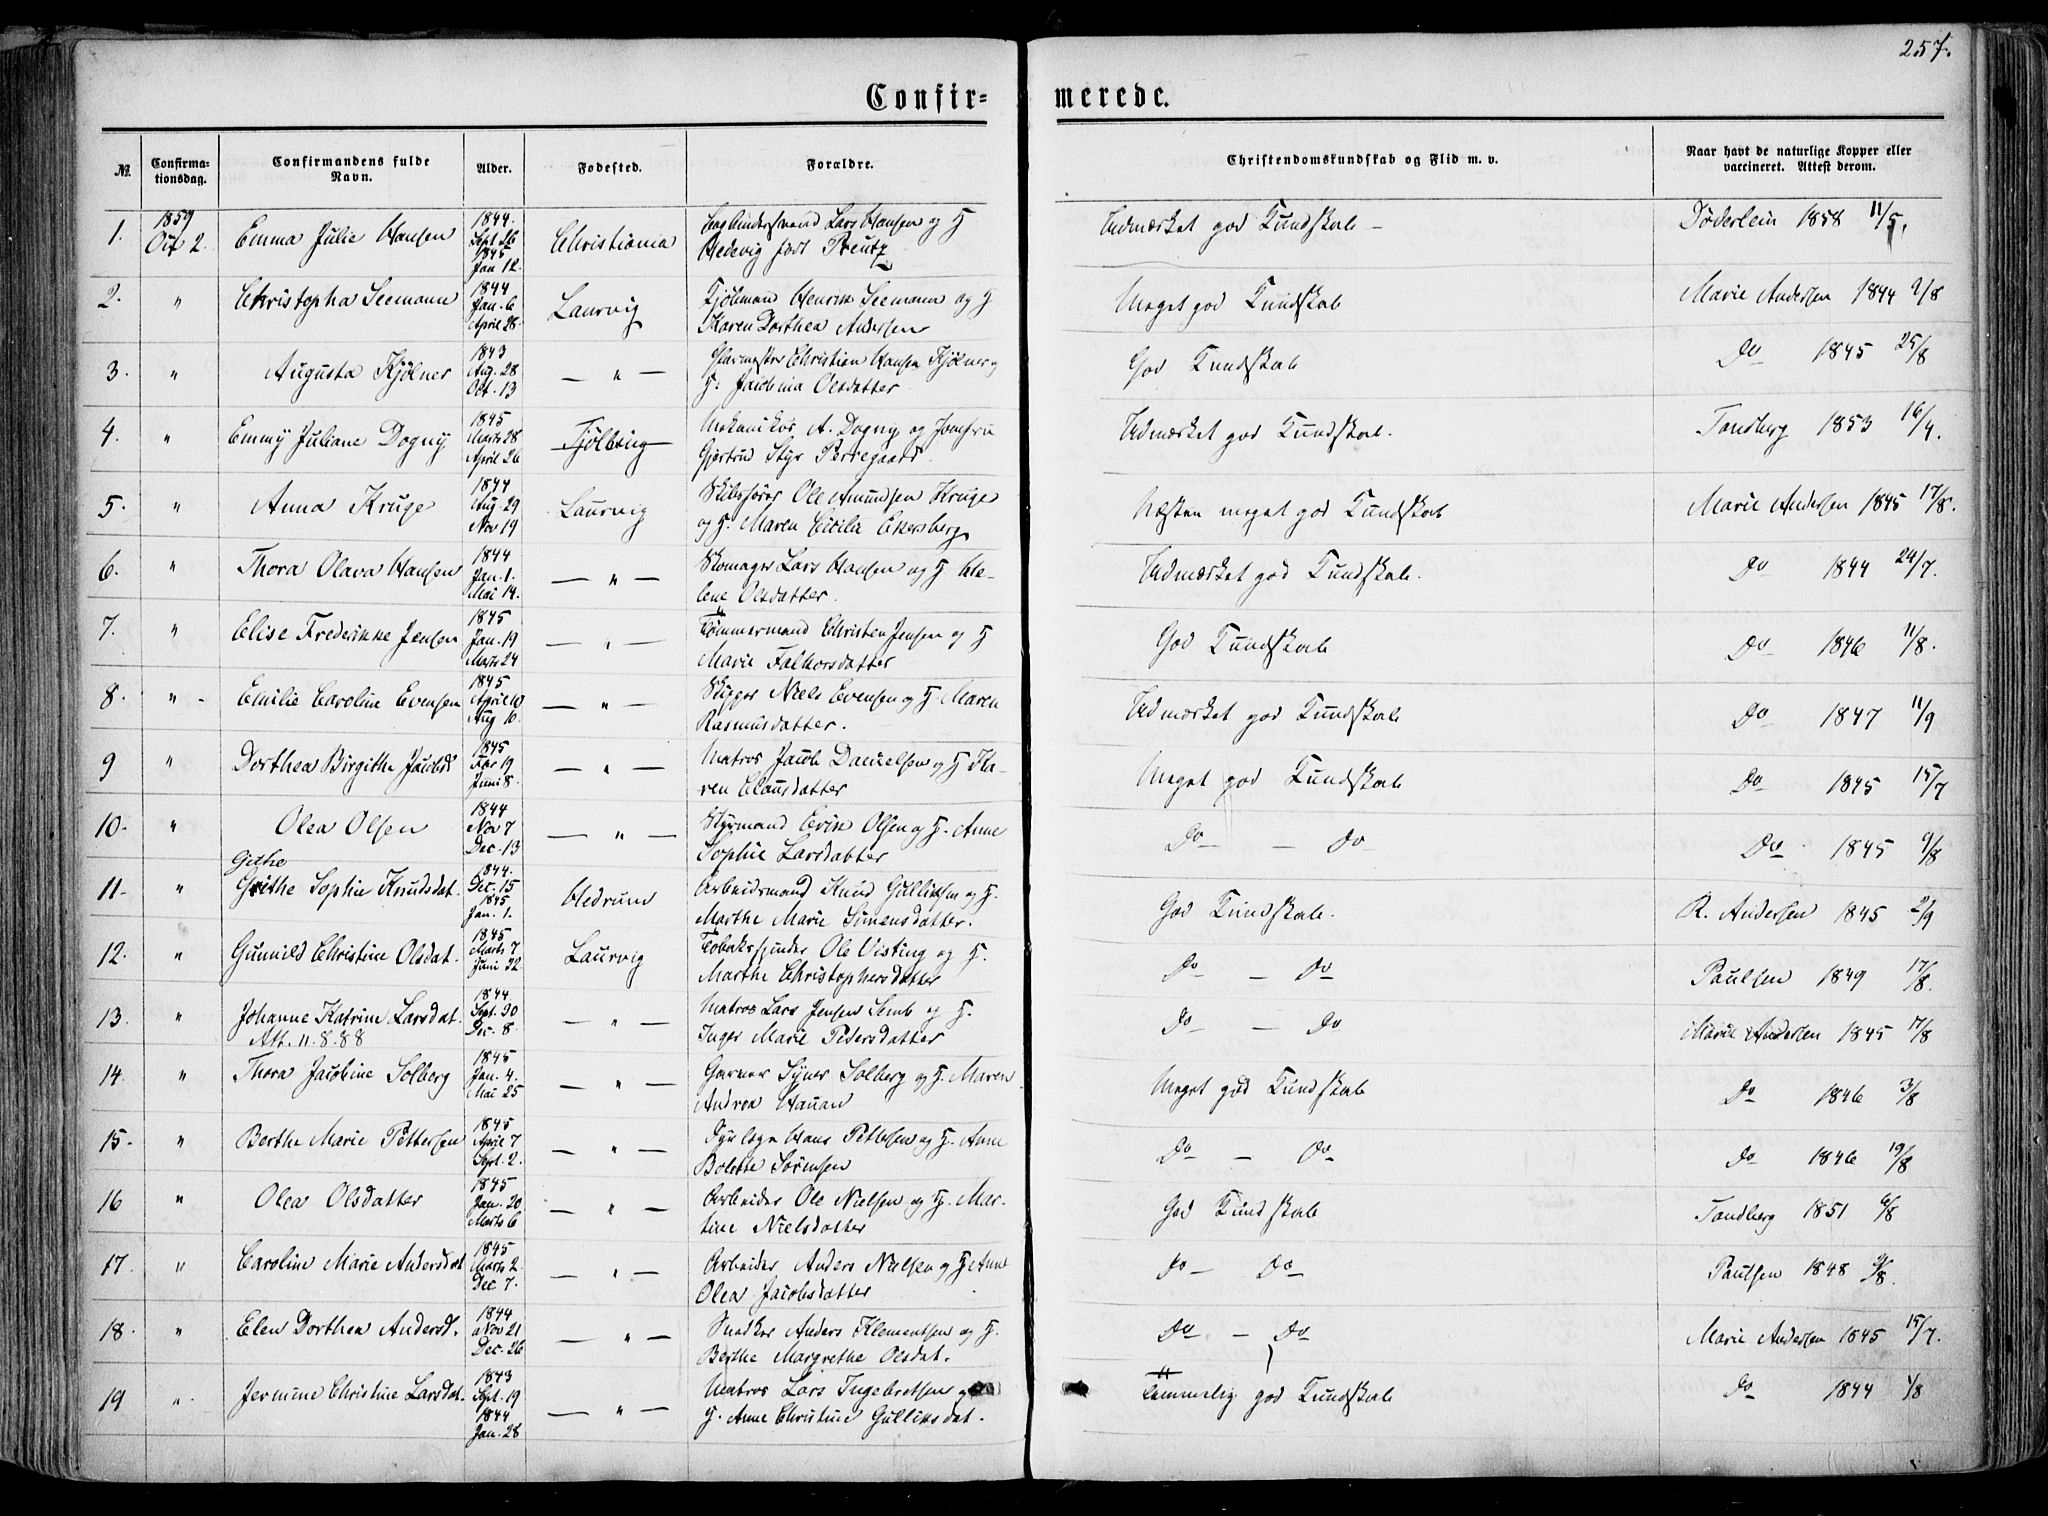 257.
Confir- merede.
№ Confirma-tionsdag. Confirmandens fulde Navn. Alder. Fødested. Forældre. Christendomskundskab og Flid m. v. Naar havt de naturlige Kopper eller vaccineret. Attest derom.
1. 1859 Oct 2. Emma Julie Hansen 1844. Sept 26 1845 Jan 12. Christiania Lars Hansen og H Hedevig født Preutz Udmærket god Kundskab - Døderlein 1858 11/5.
2. " Christopha Seemann 1844 Jan. 6 April 28. Laurvig Kjøbmand Henrik Seemann og H Karen Dorthea Andersen Meget god Kundskab Marie Andersen 1844 9/8
3. " Augusta Kjølner 1843 Aug. 28 Oct. 13 — " — Glarmester Christian Hansen Kjølner og H. Jacobina Olsdatter God Kundskab Do 1845 25/8
4. " Emmy Juliane Dogny 1845 Marts 28 April 26 Tjølling Mekanikus A. Dogny og Jomfru Gjertrud Styr Perregaard. Udmærket god Kundskab. Tandberg 1853 16/4.
5. " Anna Kruge 1844 Aug. 29 Nov 19 Laurvig Skibsfører Ole Amundsen Kruge og H. Maren Cicilie Ekersberg Næsten meget god Kundskab Marie Andersen 1845 17/8.
6. " Thora Olava Hansen 1844 Jan. 1. Mai 14. — " — Skomager Lars Hansen og H Helene Olsdatter. Udmærket god Kundskab. Do 1844 24/7.
7. " Elise Frederikke Jensen 1845 Jan. 19 Marts 24 — " — Tømmermand Christen Jensen og H Marie Falkorsdatter God Kundskab Do 1846 11/8.
8. " - Emilie Caroline Evensen 1845 April 10 Aug 10. — " — Skipper Niels Evensen og H. Maren Rasmusdatter. Udmærket god Kundskab Do 1847 11/9
9 " Dorthea Birgithe Jacobsd 1845 Febr 19 Juni 8. — " — Matros Jacob Danielsen og H Karen Clausdatter Meget god Kundskab Do 1845 15/7
10. " Olea Olsen 1844 Nov 7 Dec. 13 — " — Styrmand Erik Olsen og H. Anne Sophie Larsdatter Do — Do Do 1845 9/8
Gethe
11. " Grithe Sophie Knudsdat. 1844. Dec. 15 1845 Jan. 1. Hedrum Arbeidsmand Knud Gulliksen og H. Marthe Marie Simensdatter. God Kundskab. R. Andersen 1845 2/9
12. " Gunnild Christine Olsdat. 1845 Marts 7 Juni 22 Laurvig Tobaksspinder Ole Visting og H. Marthe Christophersdatter Do — Do Paulsen 1849 17/8.
13. " Johanne Katrine Larsdat. 1844. Sept. 30 Dec. 8. — " — Matros Lars Jensen Semb og H. Inger Marie Pedersdatter Do — Do Marie Andersen 1845 17/8
Att. 11.8.88
14. " Thora Jacobine Solberg 1845 Jan. 4. Mai 25 — " — Garver Syver Solberg og H. Maren Andrea Hauan Meget god Kundskab Do 1846 3/8
15. " Berthe Marie Pettersen 1845 April 7 Sept. 2. — " — Hans Pettersen og H. Anne Bolette Sørensen Do — Do Do 1846 19/8
16 " Olea Olsdatter 1845 Jan. 20 Marts 6 — " — Arbeider Ole Nielsen og H. Martine Nielsdatter God Kundskab Tandberg 1851 6/8
17. " Caroline Marie Andersdat 1845 Marts 2 Dec. 7. — " — Arbeider Anders Nielsen og H Anne Olea Jacobsdatter Do — Do Paulsen 1848 9/8.
18. " Elen Dorthea Andersd. 1844 Nov 21 Dec. 26 — " — Snedker Anders Klementsen og H. Berthe Margrethe Olsdat. Do — Do Marie Andersen 1845 15/7.
19 " Jermine Christine Larsdat. 1843 Sept. 19 1844 Jan. 28 — " — Matros Lars Ingebretsen og H. Anne Christine Gulliksdat. Temmelig god Kundskab Do 1844 1/8